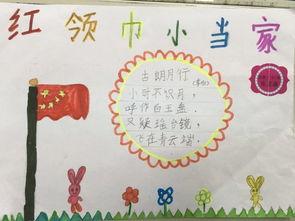 红领巾小当家
古朗月行
小时不识月,
呼作白玉盘.
又疑瑶台镜,
飞在青云端.